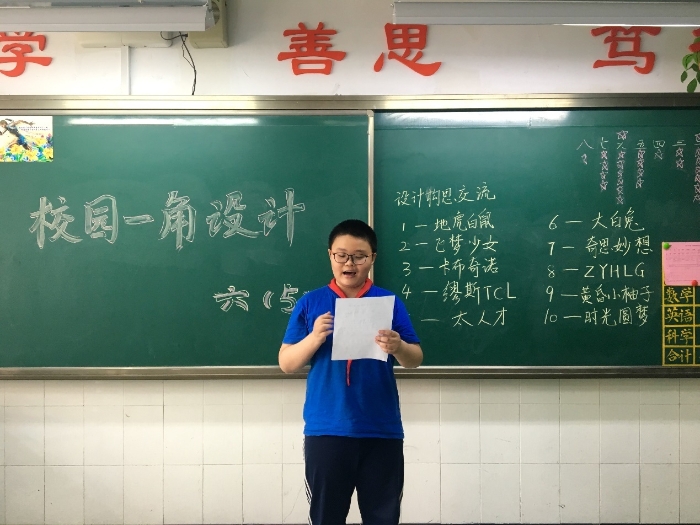 学 善思 笃
校园一角设计
六(5
设计构思交流
1—地虎白鼠
2—飞梦少女
3—卡布奇诺
4—缪斯TCL
—太人才
6—大白兔
7—奇思妙想
8—ZYHLG
9—黄昏小柚子
10—时光圆梦
八
七
六
五
四
三
数学
英语
科学
合计